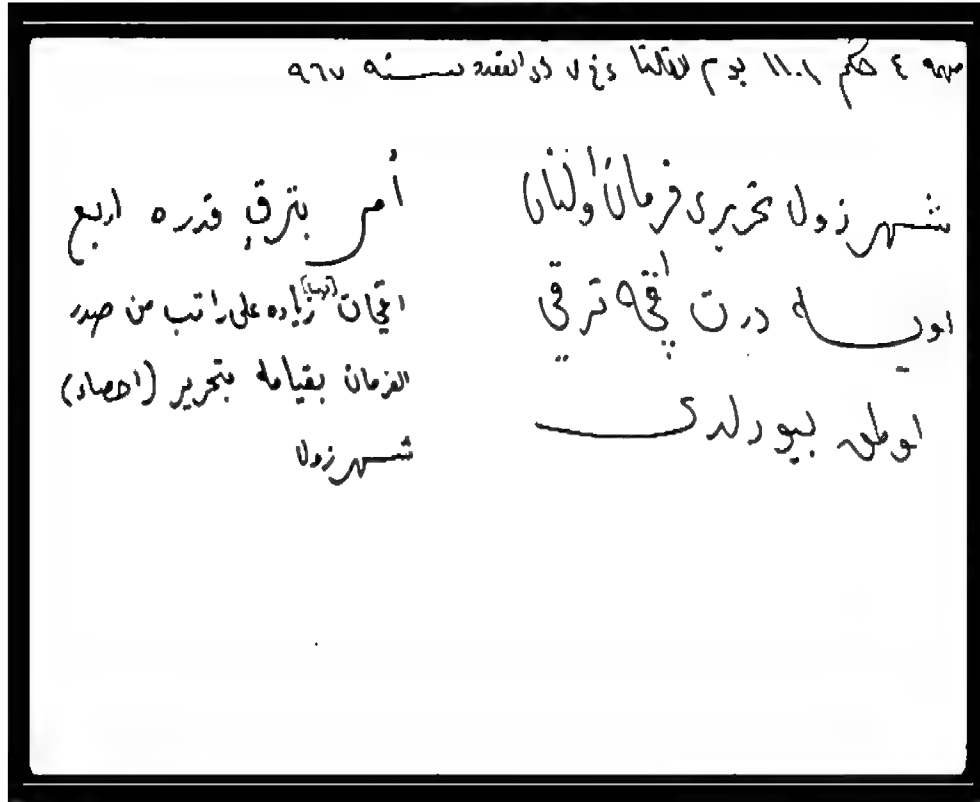 مهمه ٤ حكم ١١٠١ يوم الثلثا ٧ ذي القعده سنه ٩٦٧
شهرزول تحريرى فرمان اولنان
اويسه درت اقچه ترقي
اولمق بيورلدى
أمر بترقٍ قدره اربع
اقچات (نهيا) زياده على راتب من صدر
الفرمان بقيامه بتحرير (احصاء)
شهرزولا